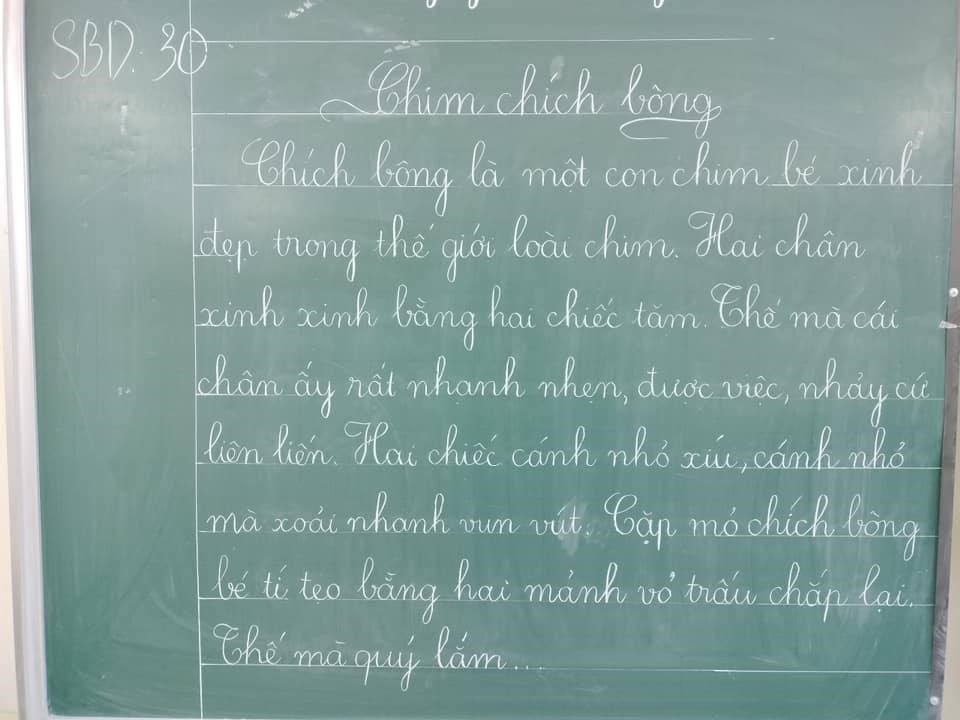 SBD: 30
Chim chích bông
Chích bông là một con chim bé xinh
đẹp trong thế giới loài chim. Hai chân
xinh xinh bằng hai chiếc tăm. Thế mà cái
chân ấy rất nhanh nhẹn, được việc, nhảy cứ
liên liến. Hai chiếc cánh nhỏ xíu, cánh nhỏ
mà xoải nhanh vun vút. Cặp mỏ chích bông
bé tí tẹo bằng hai mảnh vỏ trấu chắp lại.
Thế mà quý lắm...